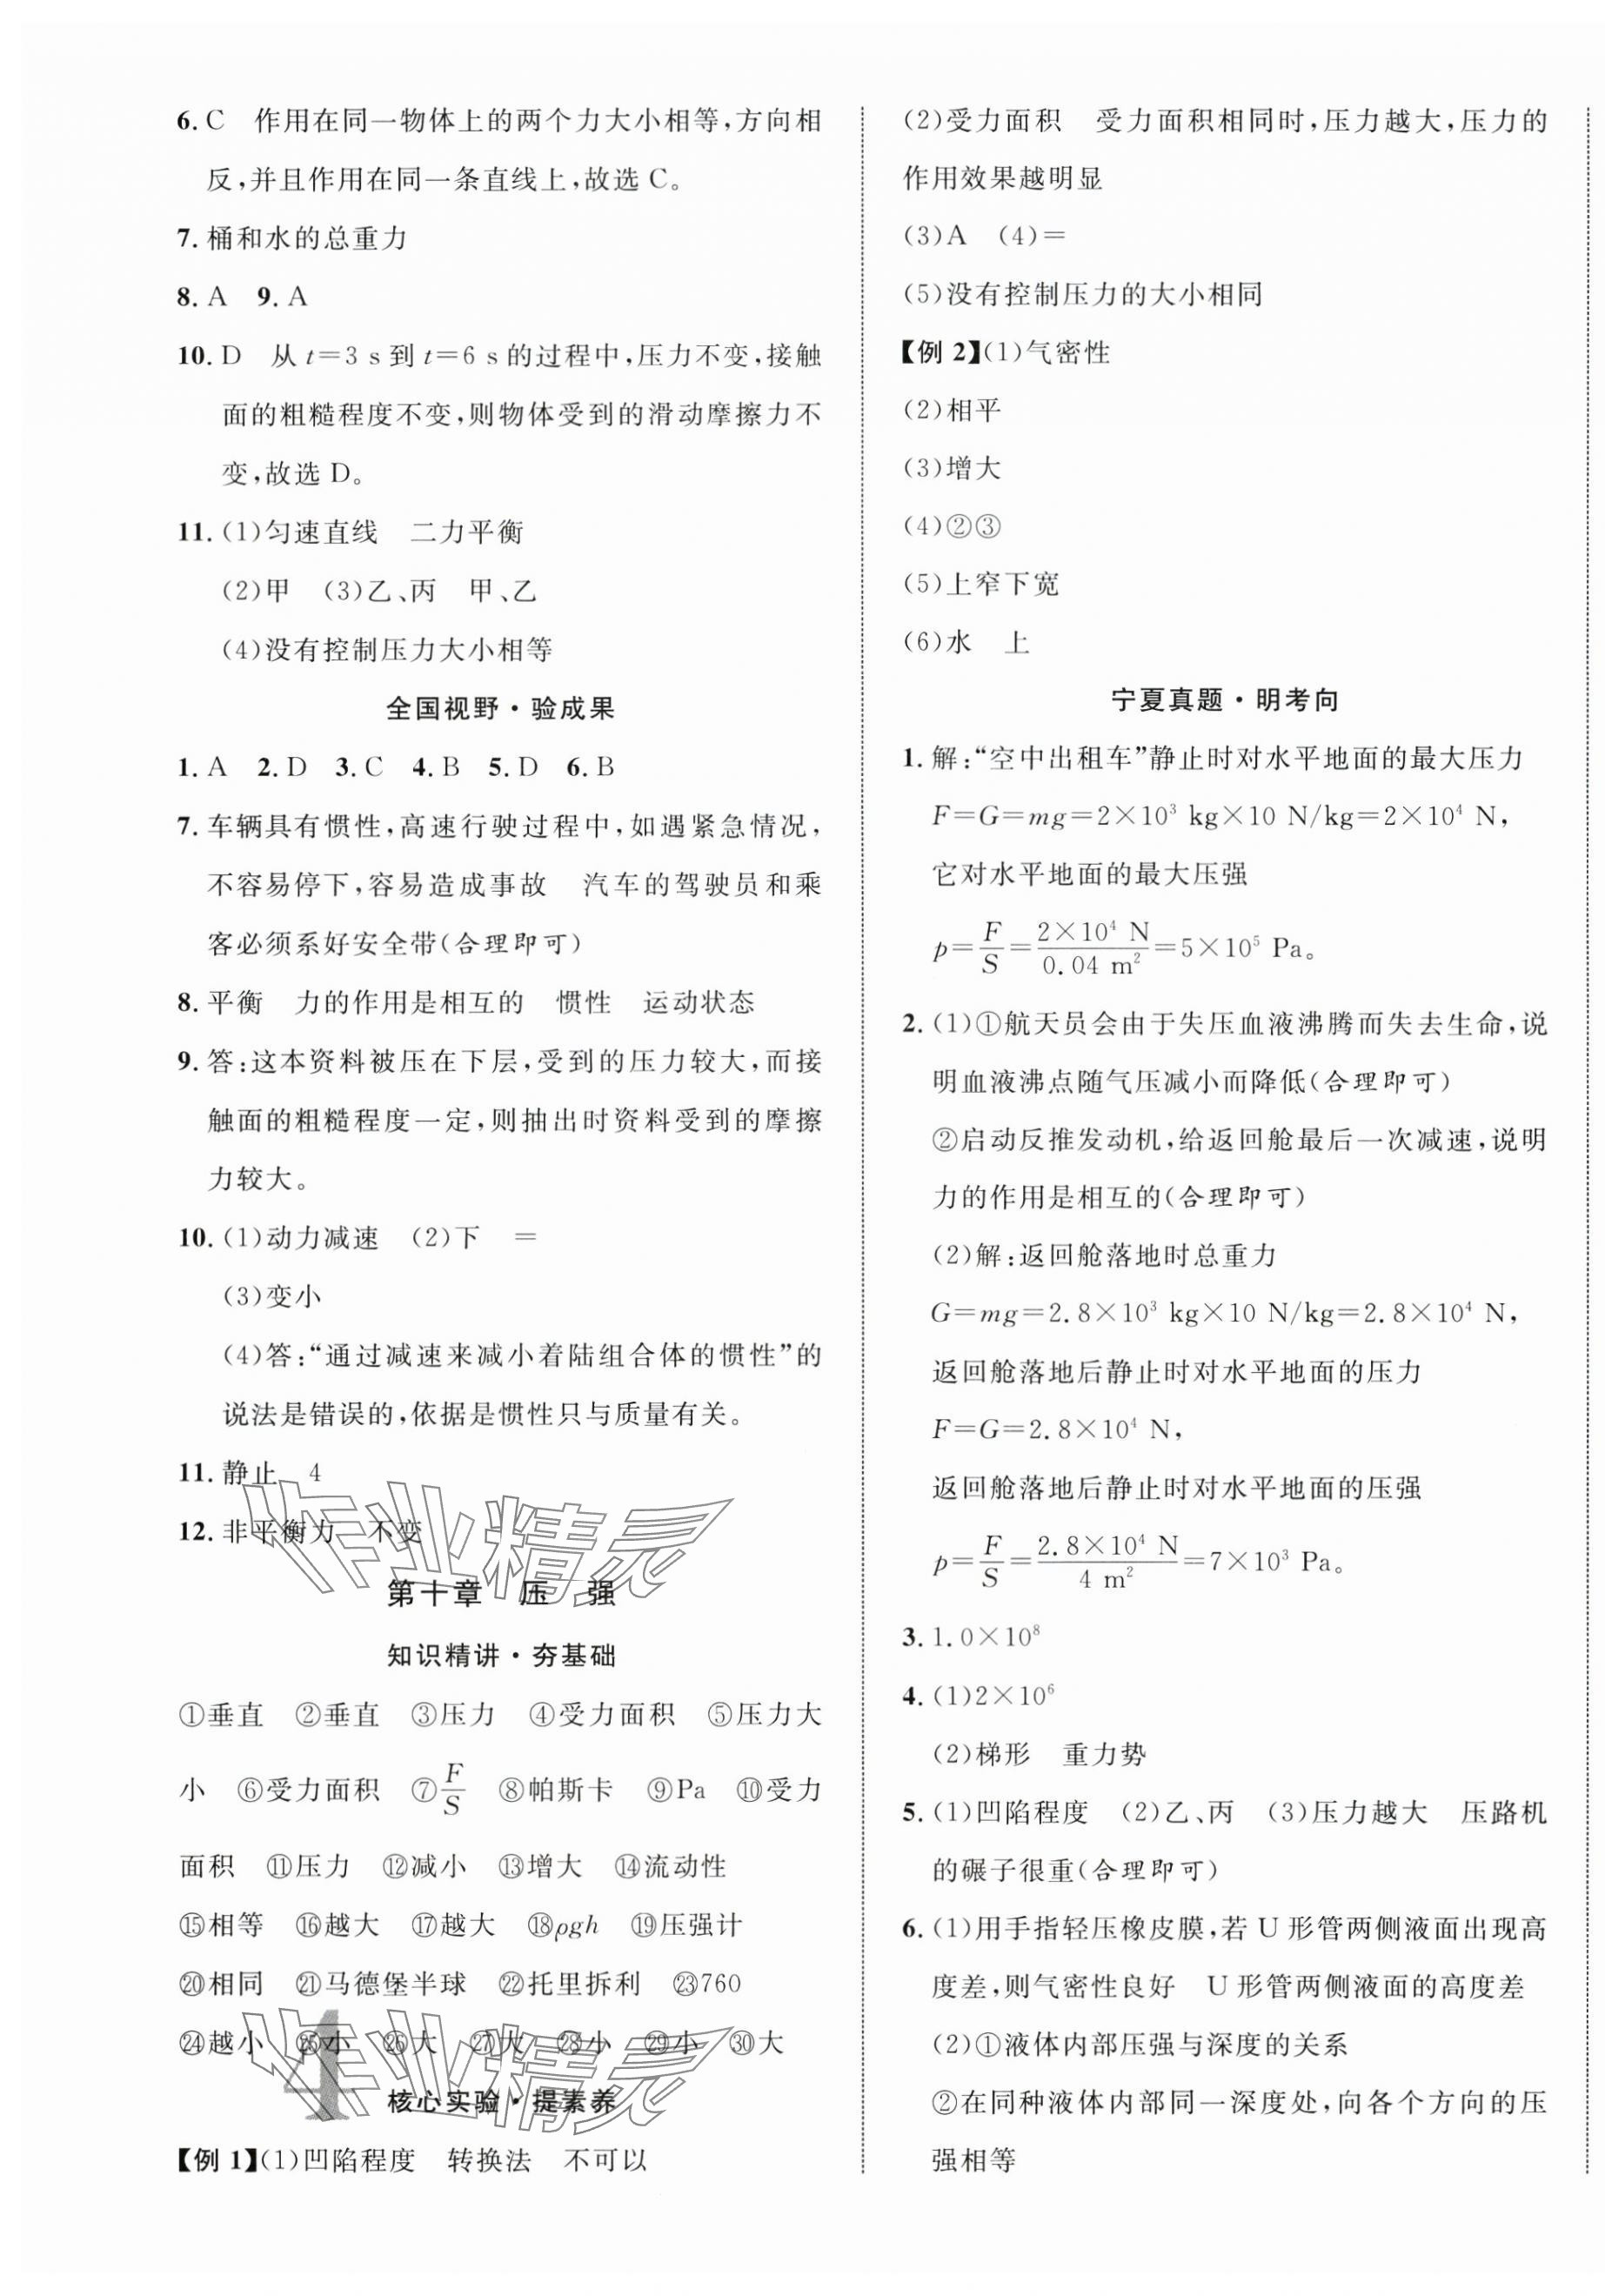 6. C　作用在同一物体上的两个力大小相等,方向相
反,并且作用在同一条直线上,故选 C。
7. 桶和水的总重力
8. A　9. A
10. D　从 t=3 s 到 t=6 s 的过程中,压力不变,接触
面的粗糙程度不变,则物体受到的滑动摩擦力不
变,故选 D。
11. (1)匀速直线　二力平衡
(2)甲　(3)乙、丙　甲、乙
(4)没有控制压力大小相等
全国视野·验成果
1. A　2. D　3. C　4. B　5. D　6. B
7. 车辆具有惯性,高速行驶过程中,如遇紧急情况,
不容易停下,容易造成事故　汽车的驾驶员和乘
客必须系好安全带(合理即可)
8. 平衡　力的作用是相互的　惯性　运动状态
9. 答:这本资料被压在下层,受到的压力较大,而接
触面的粗糙程度一定,则抽出时资料受到的摩擦
力较大。
10. (1)动力减速　(2)下　=
(3)变小
(4)答:“通过减速来减小着陆组合体的惯性”的
说法是错误的,依据是惯性只与质量有关。
11. 静止　4
12. 非平衡力　不变
作业精灵
第十章　压　强
知识精讲·夯基础
①垂直　②垂直　③压力　④受力面积　⑤压力大
小　⑥受力面积　⑦F/S　⑧帕斯卡　⑨Pa　⑩受力
面积　⑪压力　⑫减小　⑬增大　⑭流动性
⑮相等　⑯越大　⑰越大　⑱ρgh　⑲压强计
⑳相同　㉑马德堡半球　㉒托里拆利　㉓760
㉔越小　㉕小　㉖大　㉗大　㉘小　㉙小　㉚大
作业精灵
4
核心实验·提素养
【例 1】(1)凹陷程度　转换法　不可以
(2)受力面积　受力面积相同时,压力越大,压力的
作用效果越明显
(3)A　(4)=
(5)没有控制压力的大小相同
【例 2】(1)气密性
(2)相平
(3)增大
(4)②③
(5)上窄下宽
(6)水　上
宁夏真题·明考向
1. 解:“空中出租车”静止时对水平地面的最大压力
F=G=mg=2×10³ kg×10 N/kg=2×10⁴ N,
它对水平地面的最大压强
p=F/S=2×10⁴ N/0.04 m²=5×10⁵ Pa。
2. (1)①航天员会由于失压血液沸腾而失去生命,说
明血液沸点随气压减小而降低(合理即可)
②启动反推发动机,给返回舱最后一次减速,说明
力的作用是相互的(合理即可)
(2)解:返回舱落地时总重力
G=mg=2.8×10³ kg×10 N/kg=2.8×10⁴ N,
返回舱落地后静止时对水平地面的压力
F=G=2.8×10⁴ N,
返回舱落地后静止时对水平地面的压强
p=F/S=2.8×10⁴ N/4 m²=7×10³ Pa。
3. 1.0×10⁸
4. (1)2×10⁶
(2)梯形　重力势
5. (1)凹陷程度　(2)乙、丙　(3)压力越大　压路机
的碾子很重(合理即可)
6. (1)用手指轻压橡皮膜,若 U 形管两侧液面出现高
度差,则气密性良好　U 形管两侧液面的高度差
(2)①液体内部压强与深度的关系
②在同种液体内部同一深度处,向各个方向的压
强相等